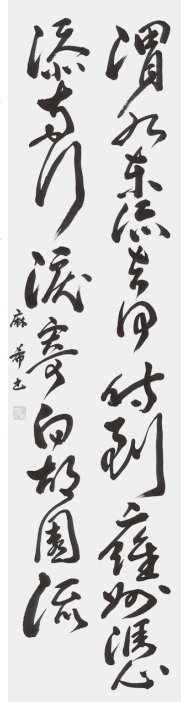 渭水東流去何時到雍州憑
添兩行淚寄向故園流
麻希書